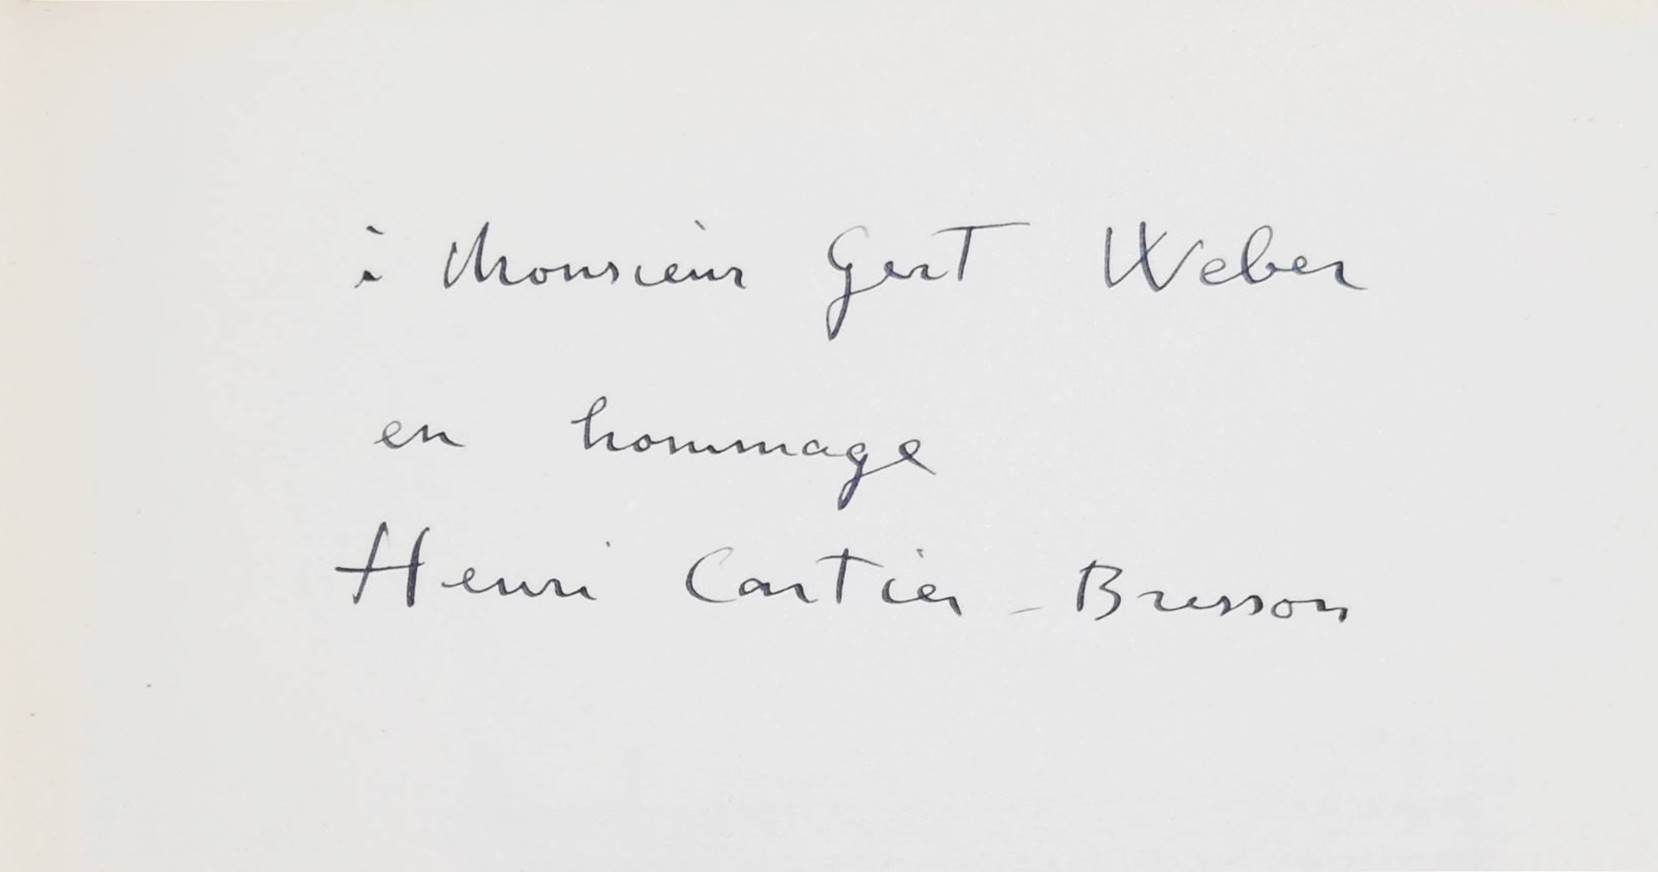 à Monsieur Gert Weber
en hommage
Henri Cartier-Bresson